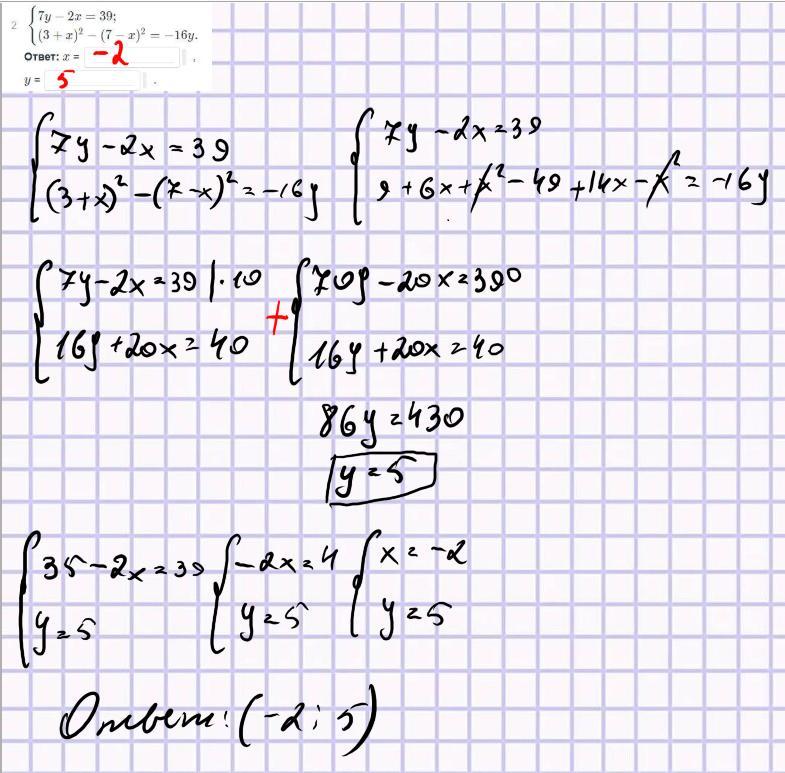 2 { 7y − 2x = 39;
(3 + x)² − (7 − x)² = −16y.
Ответ: x = -2 ,
y = 5 .
{ 7y - 2x = 39
(3+x)² - (7-x)² = -16y
{ 7y - 2x = 39
9 + 6x + x² - 49 + 14x - x² = -16y
{ 7y - 2x = 39 | · 10
16y + 20x = 40
+ { 70y - 20x = 390
16y + 20x = 40
86y = 430
y = 5
{ 35 - 2x = 39
y = 5
{ -2x = 4
y = 5
{ x = -2
y = 5
Ответ: (-2; 5)